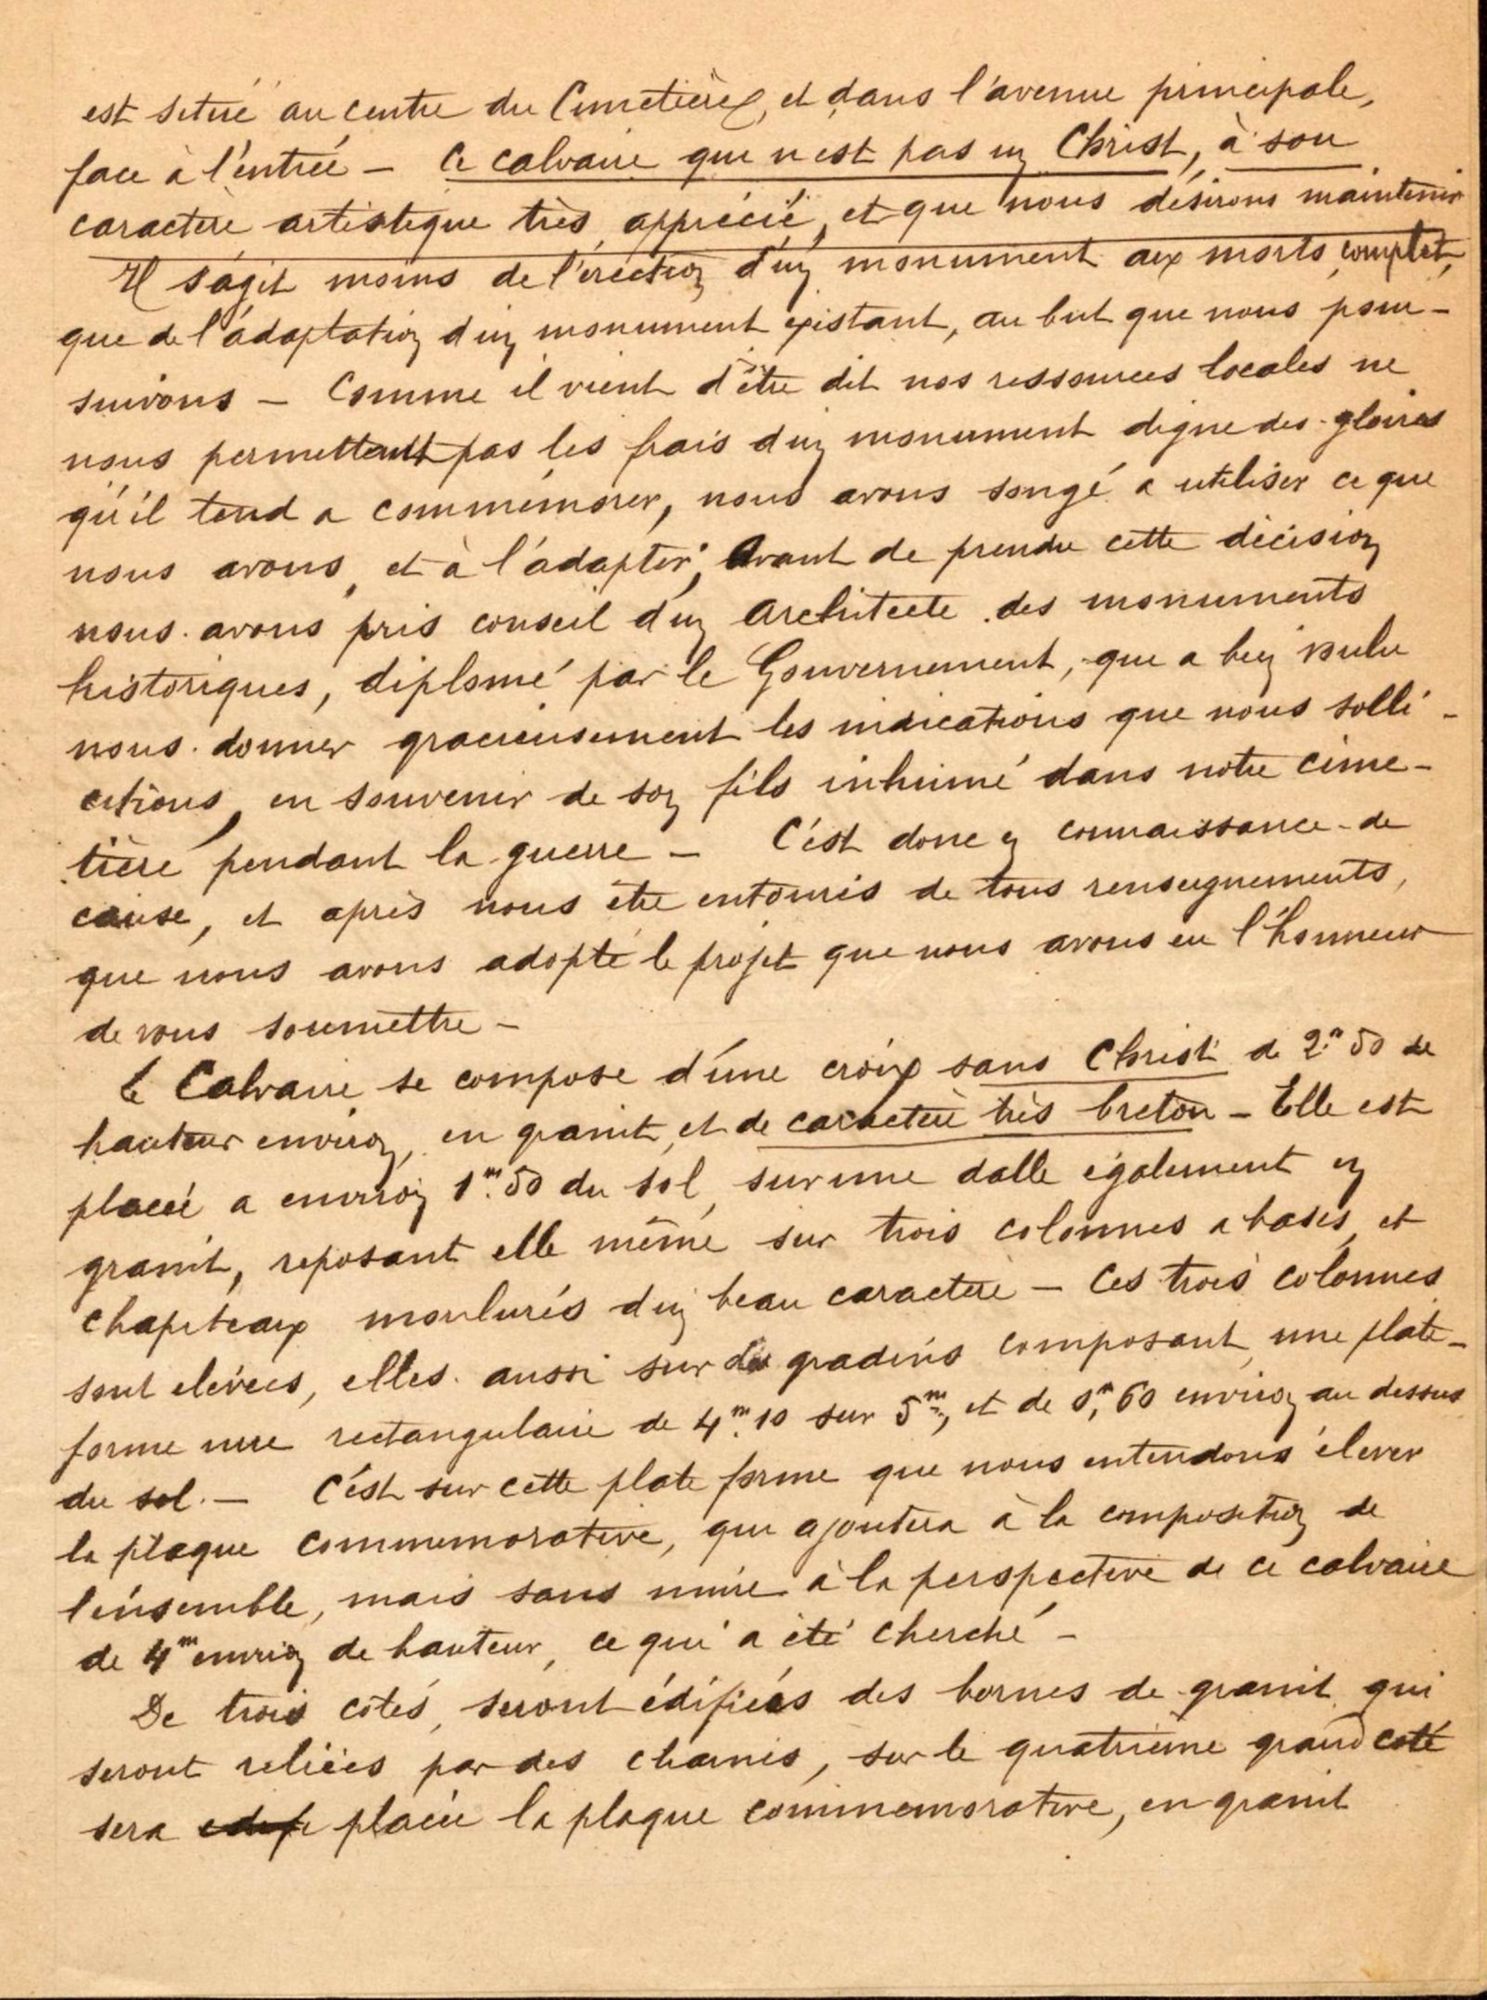 est situé au centre du Cimetière, et dans l'avenue principale,
face à l'entrée – Ce calvaire qui n'est pas un Christ, à son
caractère artistique très apprécié, et que nous désirons maintenir
Il s'agit moins de l'érection d'un monument aux morts complet,
que de l'adaptation d'un monument existant, au but que nous pour-
suivons – Comme il vient d'être dit nos ressources locales ne
nous permettent pas les frais d'un monument digne des gloires
qu'il tend a commémorer, nous avons songé a utiliser ce que
nous avons, et à l'adapter; Avant de prendre cette décision
nous avons pris conseil d'un Architecte des monuments
historiques, diplomé par le Gouvernement, qui a bien voulu
nous donner gracieusement les indications que nous solli-
citions, en souvenir de son fils inhumé dans notre cime-
tière pendant la guerre – C'est donc en connaissance de
cause, et après nous être entourés de tous renseignements,
que nous avons adopté le projet que nous avons eu l'honneur
de vous soumettre –
Le Calvaire se compose d'une croix sans Christ de 2m50 de
hauteur environ, en granit, et de caractère très breton – Elle est
placée a environ 1m.50 du sol, sur une dalle également en
granit, reposant elle même sur trois colonnes a bases, et
chapiteaux moulurés d'un beau caractère – Ces trois colonnes
sont elevées, elles aussi sur des gradins composant une plate-
forme nue rectangulaire de 4m.10 sur 5m, et de 0m,60 environ au dessus
du sol. – C'est sur cette plate forme que nous entendons élever
la plaque commemorative, qui ajoutera à la composition de
l'ensemble, mais sans nuire à la perspective de ce calvaire
de 4m environ de hauteur, ce qui a été cherché –
De trois cotés, seront édifiées des bornes de granit qui
seront reliées par des chaines, sur le quatrième grand coté
sera edifi placée la plaque commemorative, en granit